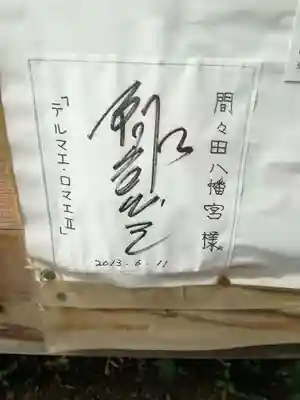 間々田八幡宮 様
「テルマエ・ロマエⅡ」
2013.6.11